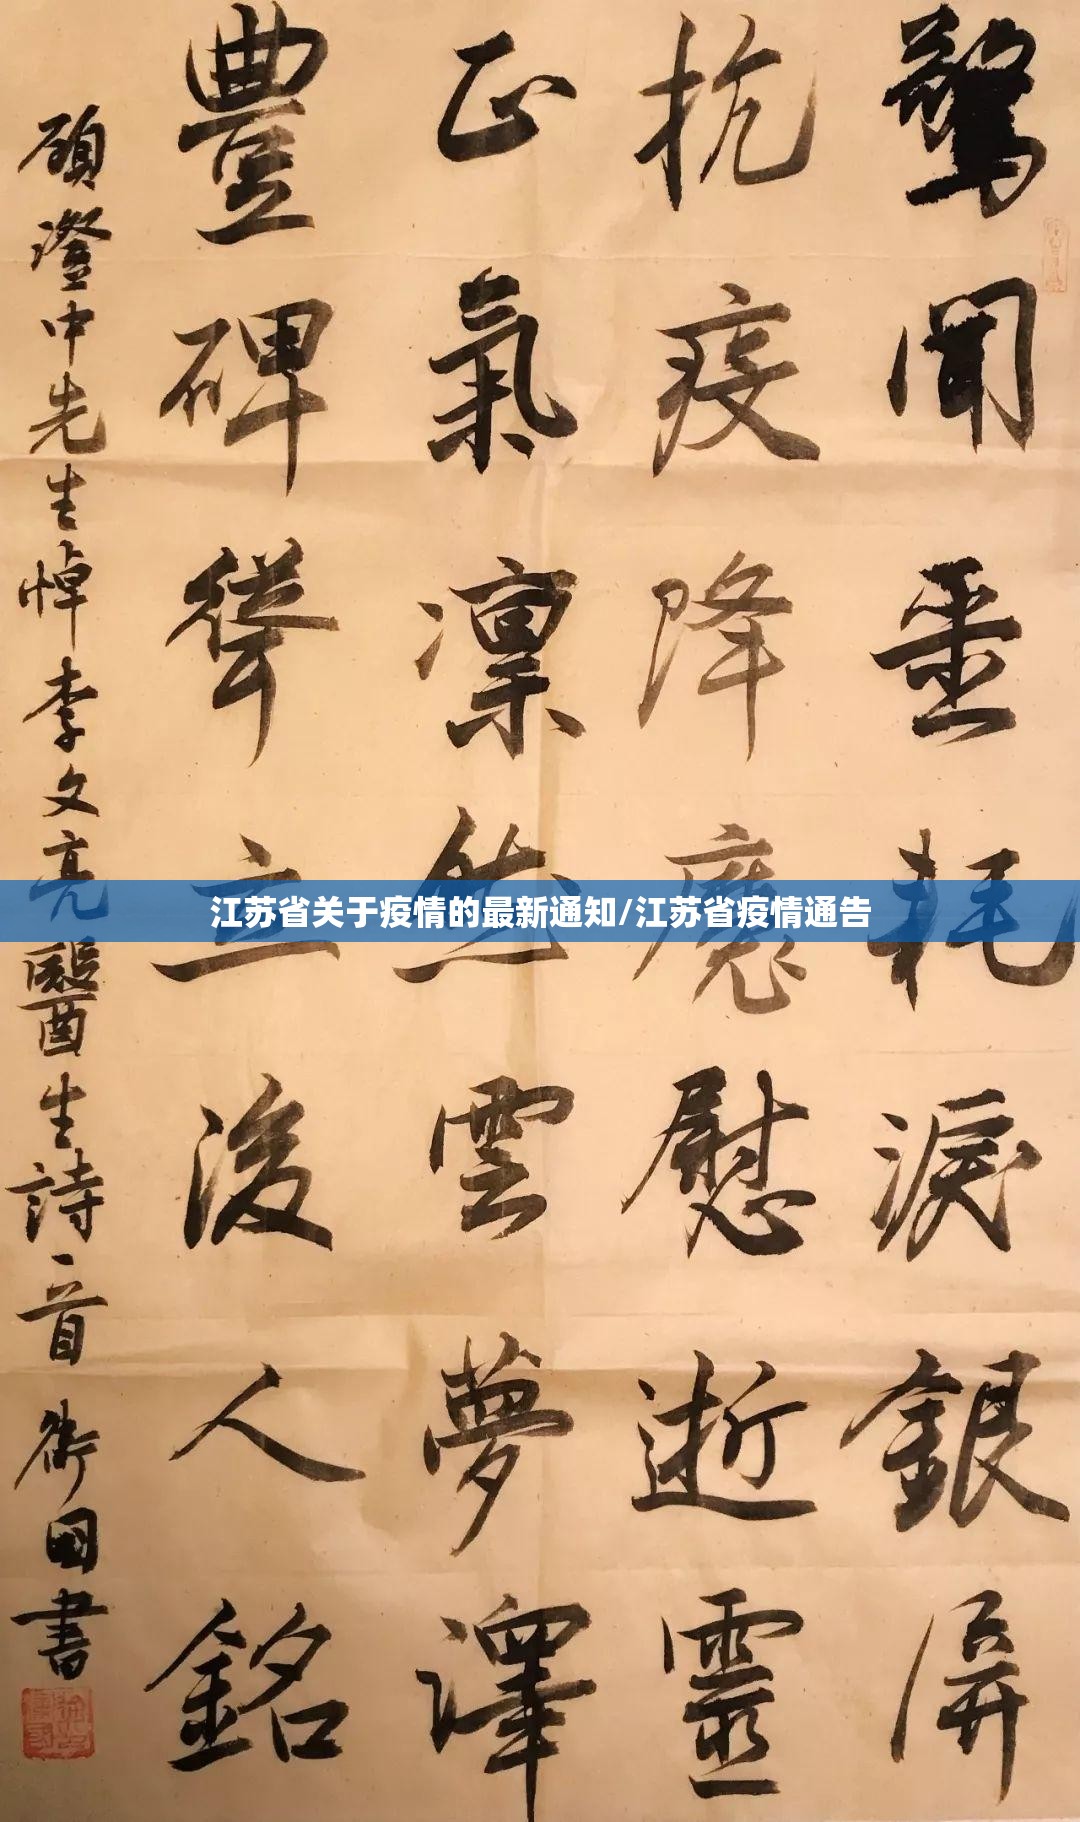 驚聞噩耗淚銀屏
抗疫降魔慰逝靈
正氣凜然雲夢澤
豐碑聳立後人銘
頋澄中先生悼李文亮醫生詩一首 衛国書
江苏省关于疫情的最新通知/江苏省疫情通告